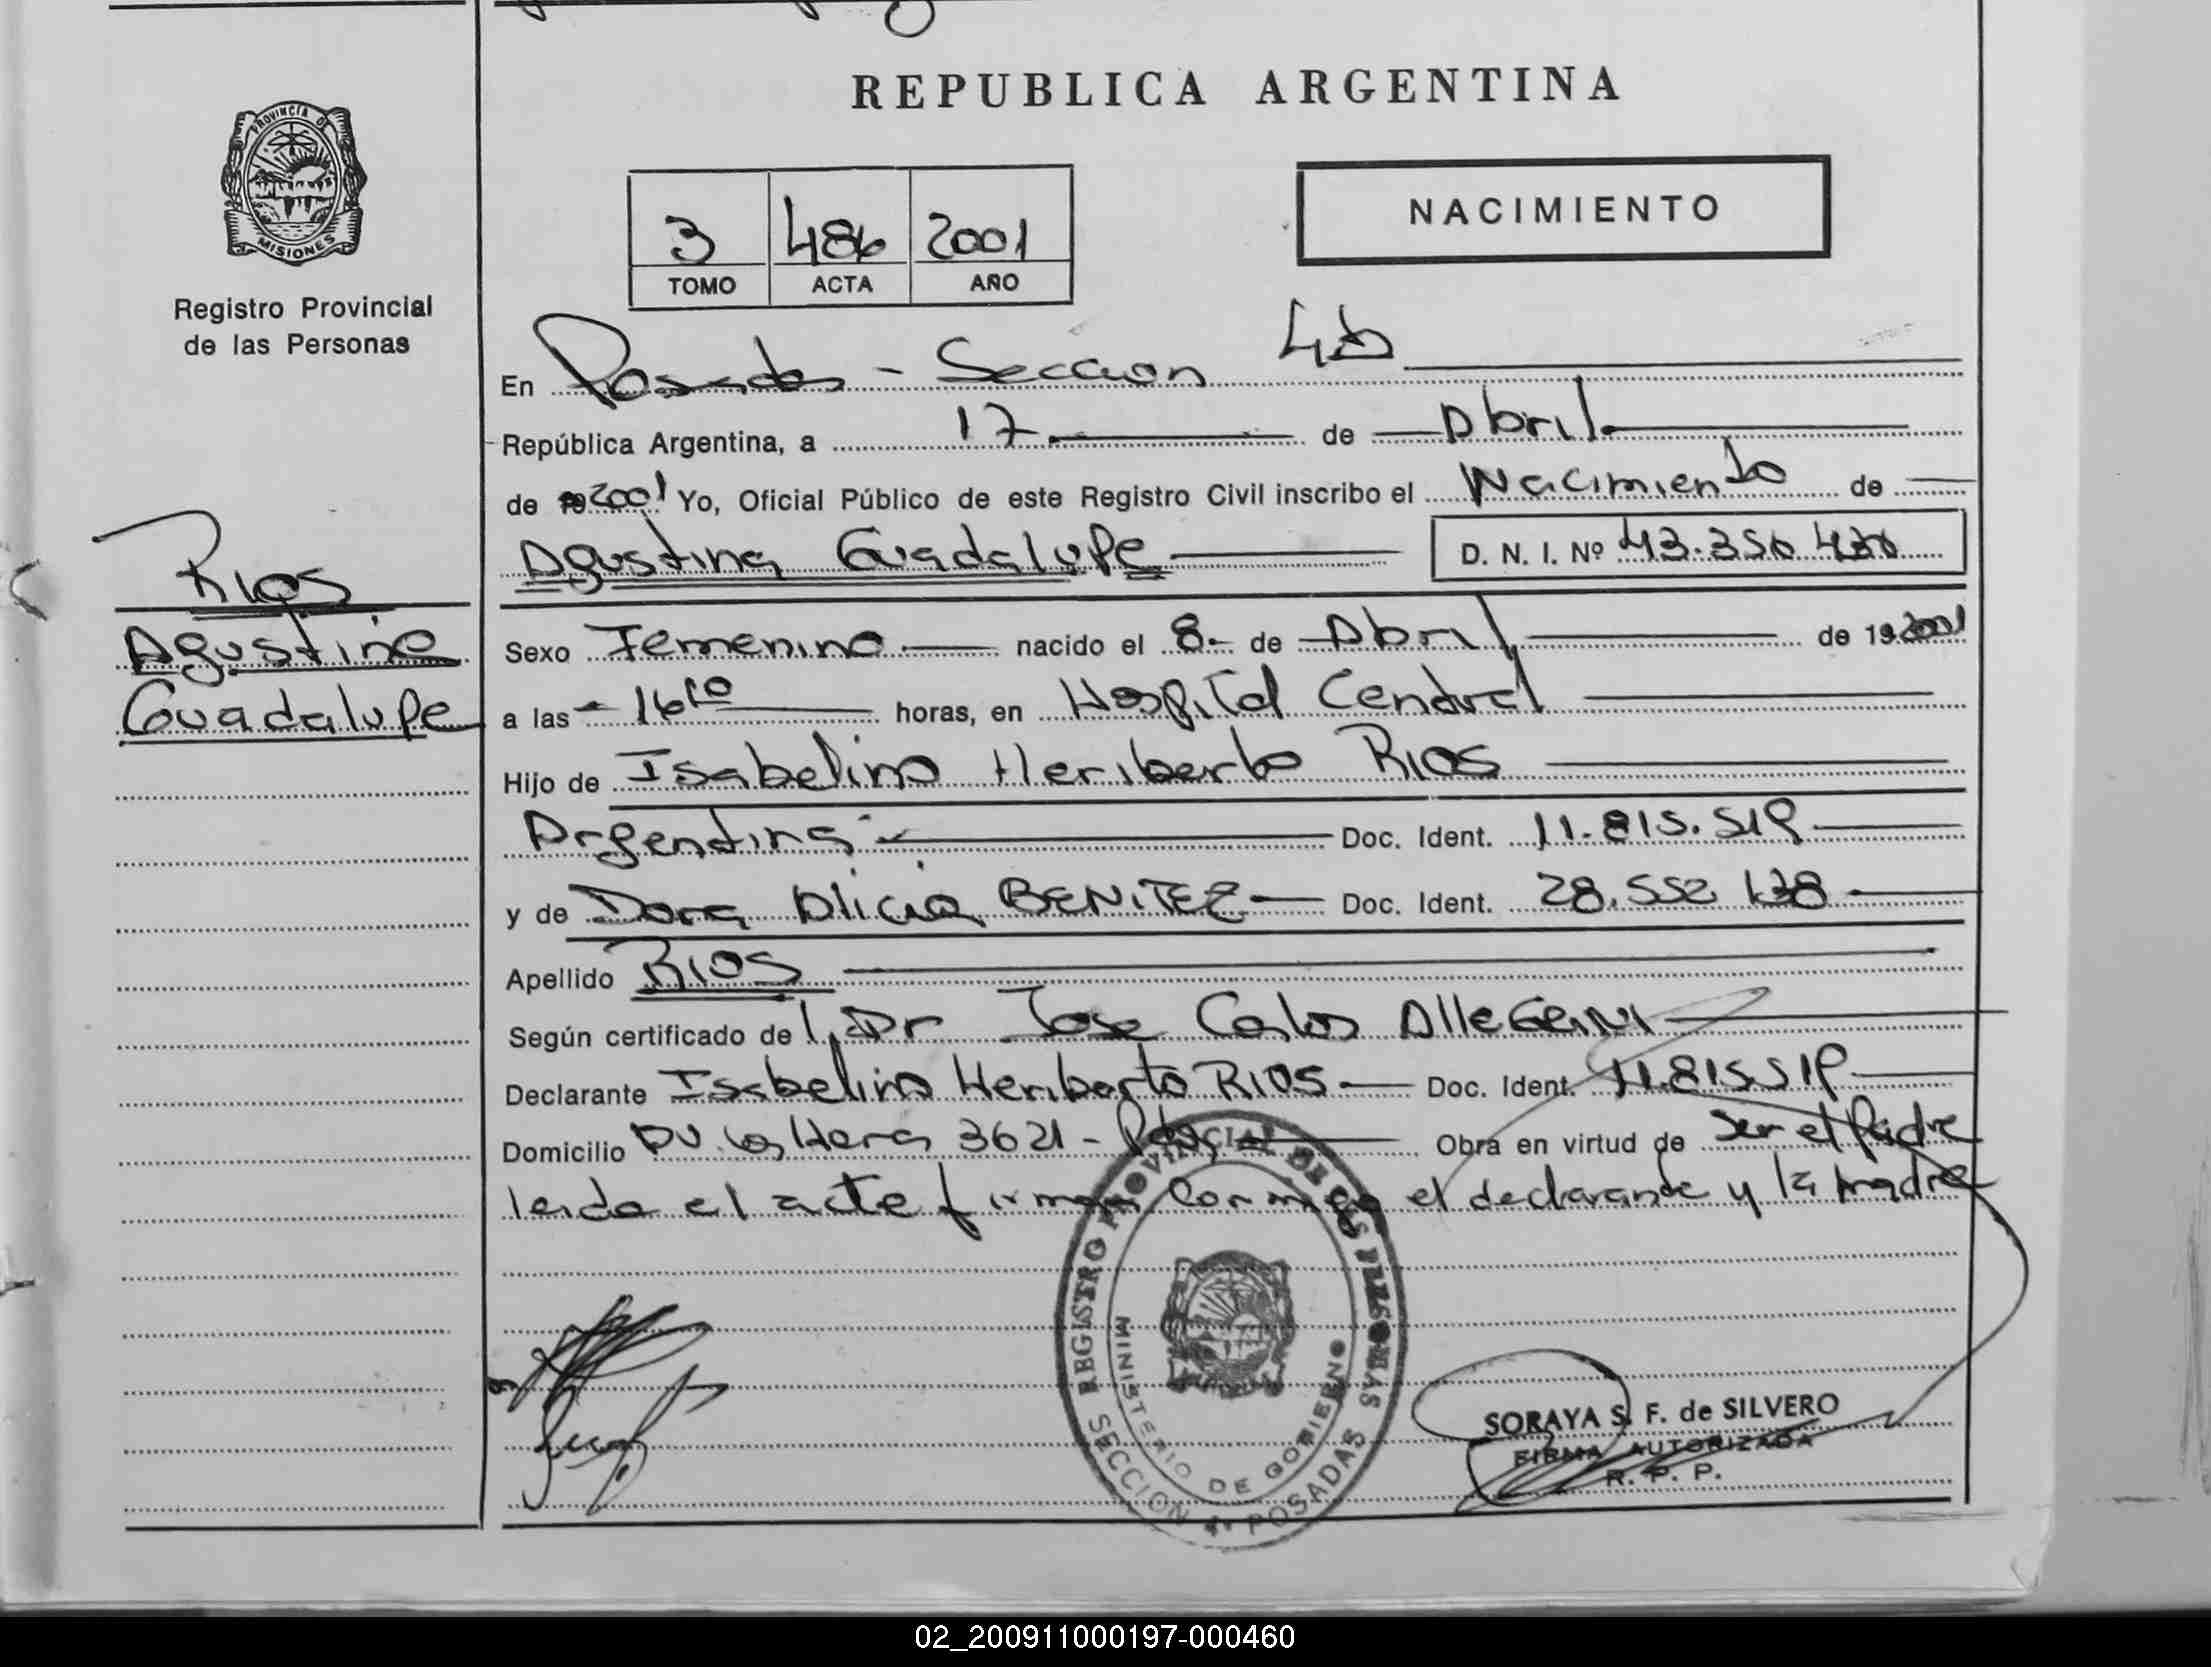 REPUBLICA ARGENTINA
PROVINCIA DE
MISIONES
Registro Provincial
de las Personas
NACIMIENTO
3 486 2001
TOMO ACTA AÑO
En Posadas - Sección 4a
República Argentina, a 17 de Abril
de 2001 Yo, Oficial Público de este Registro Civil inscribo el Nacimiento de
Agustina Guadalupe D. N. I. Nº
Rios
Agustina
Guadalupe
Sexo Femenino nacido el 8 de Abril de 192001
a las 16 10 horas, en Hospital Central
Hijo de Isabelino Heriberto Rios
Argentina Doc. Ident. 11.815.519
y de Dora Alicia BENITEZ Doc. Ident. 28.552 138
Apellido RIOS
Según certificado de Dr Jose Carlos
Declarante Isabelino Heriberto RIOS Doc. Ident. 11.815519
Domicilio Av. Las Heras 3621 - Obra en virtud de Ser el Padre
leida el acta firman conmigo el declarante y la madre
REGISTRO PROVINCIAL DE LAS PERSONAS
MINISTERIO DE GOBIERNO
SECCION 4a POSADAS
SORAYA S. F. de SILVERO
FIRMA AUTORIZADA
R. P. P.
02_200911000197-000460